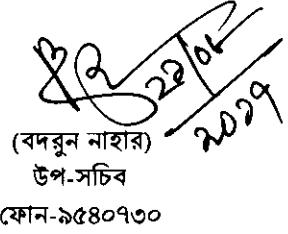 ২৯/০৮
২০১৭
(বদরুন নাহার)
উপ-সচিব
ফোন-৯৫৪০৭৩০